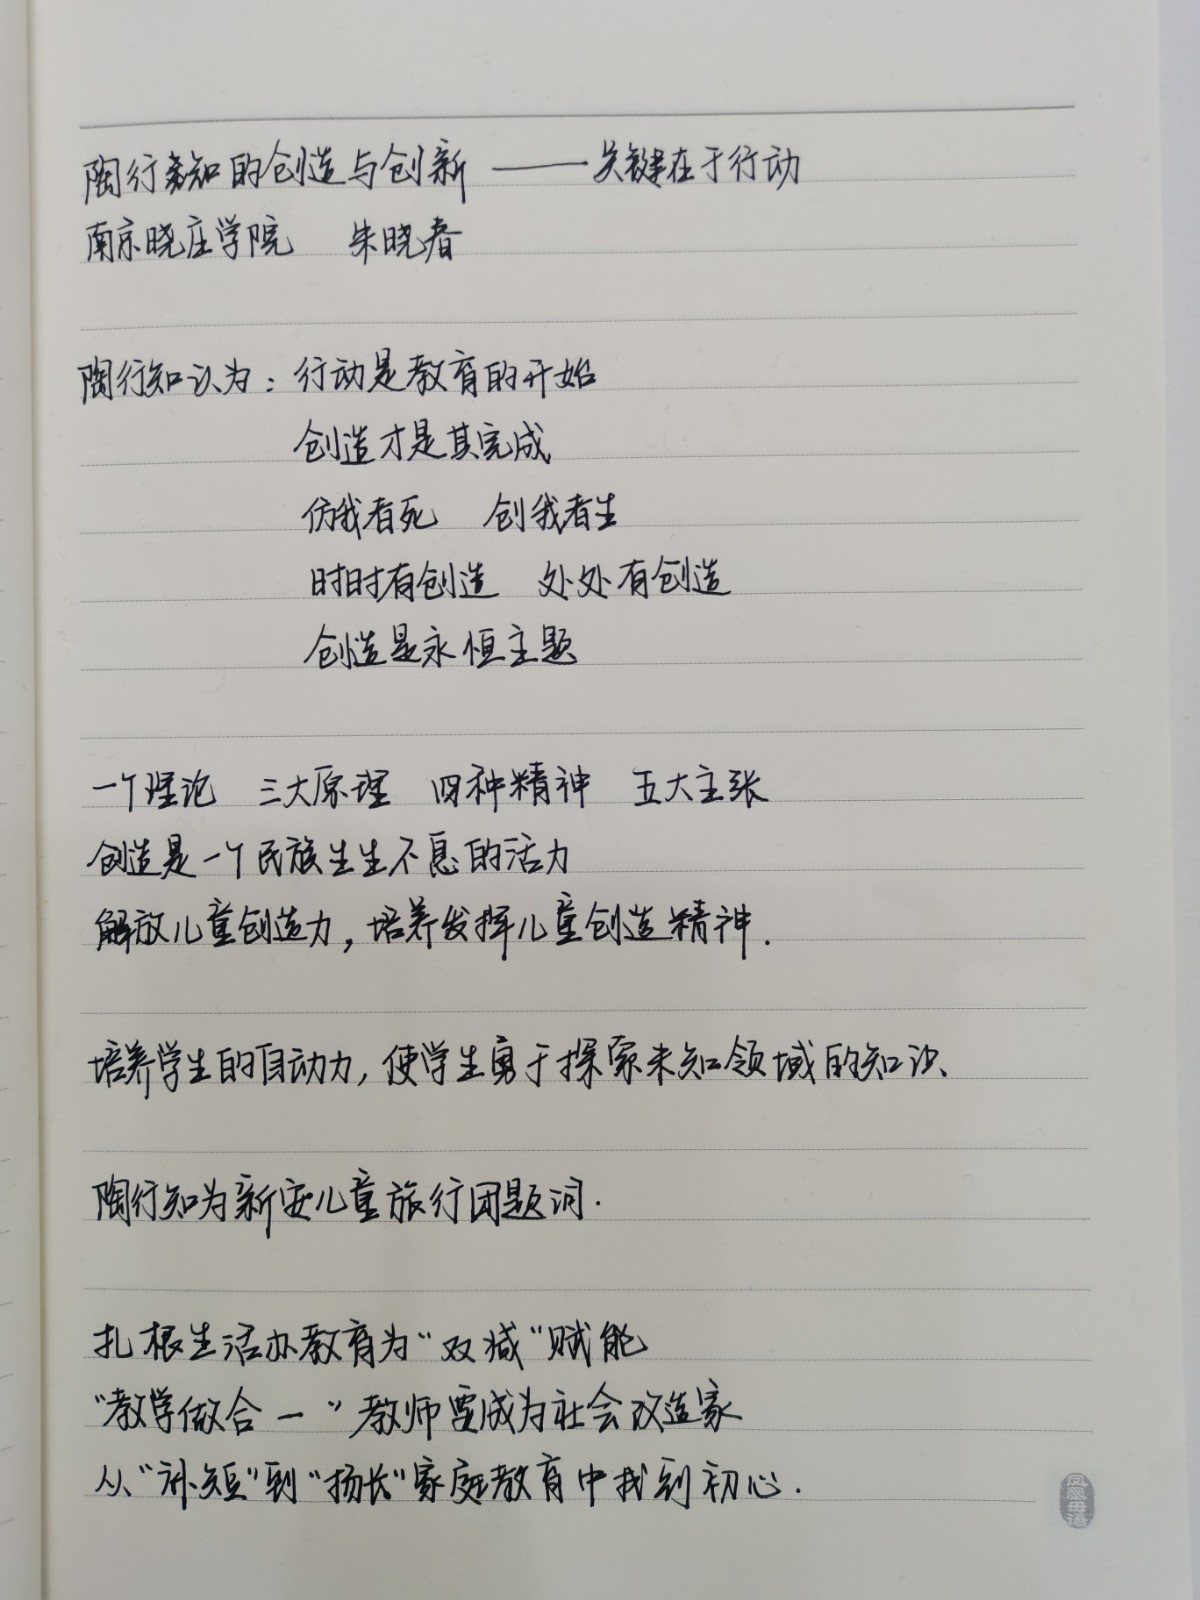 陶行知的创造与创新 ——关键在于行动
南京晓庄学院 朱晓春
陶行知认为：行动是教育的开始
创造才是其完成
仿我者死 创我者生
时时有创造 处处有创造
创造是永恒主题
一个理论 三大原理 四种精神 五大主张
创造是一个民族生生不息的活力
解放儿童创造力，培养发挥儿童创造精神.
培养学生的自动力，使学生勇于探索未知领域的知识、
陶行知为新安儿童旅行团题词.
扎根生活办教育为“双减”赋能
“教学做合一”教师要成为社会改造家
从“补短”到“扬长”家庭教育中找到初心.
凤凰母语